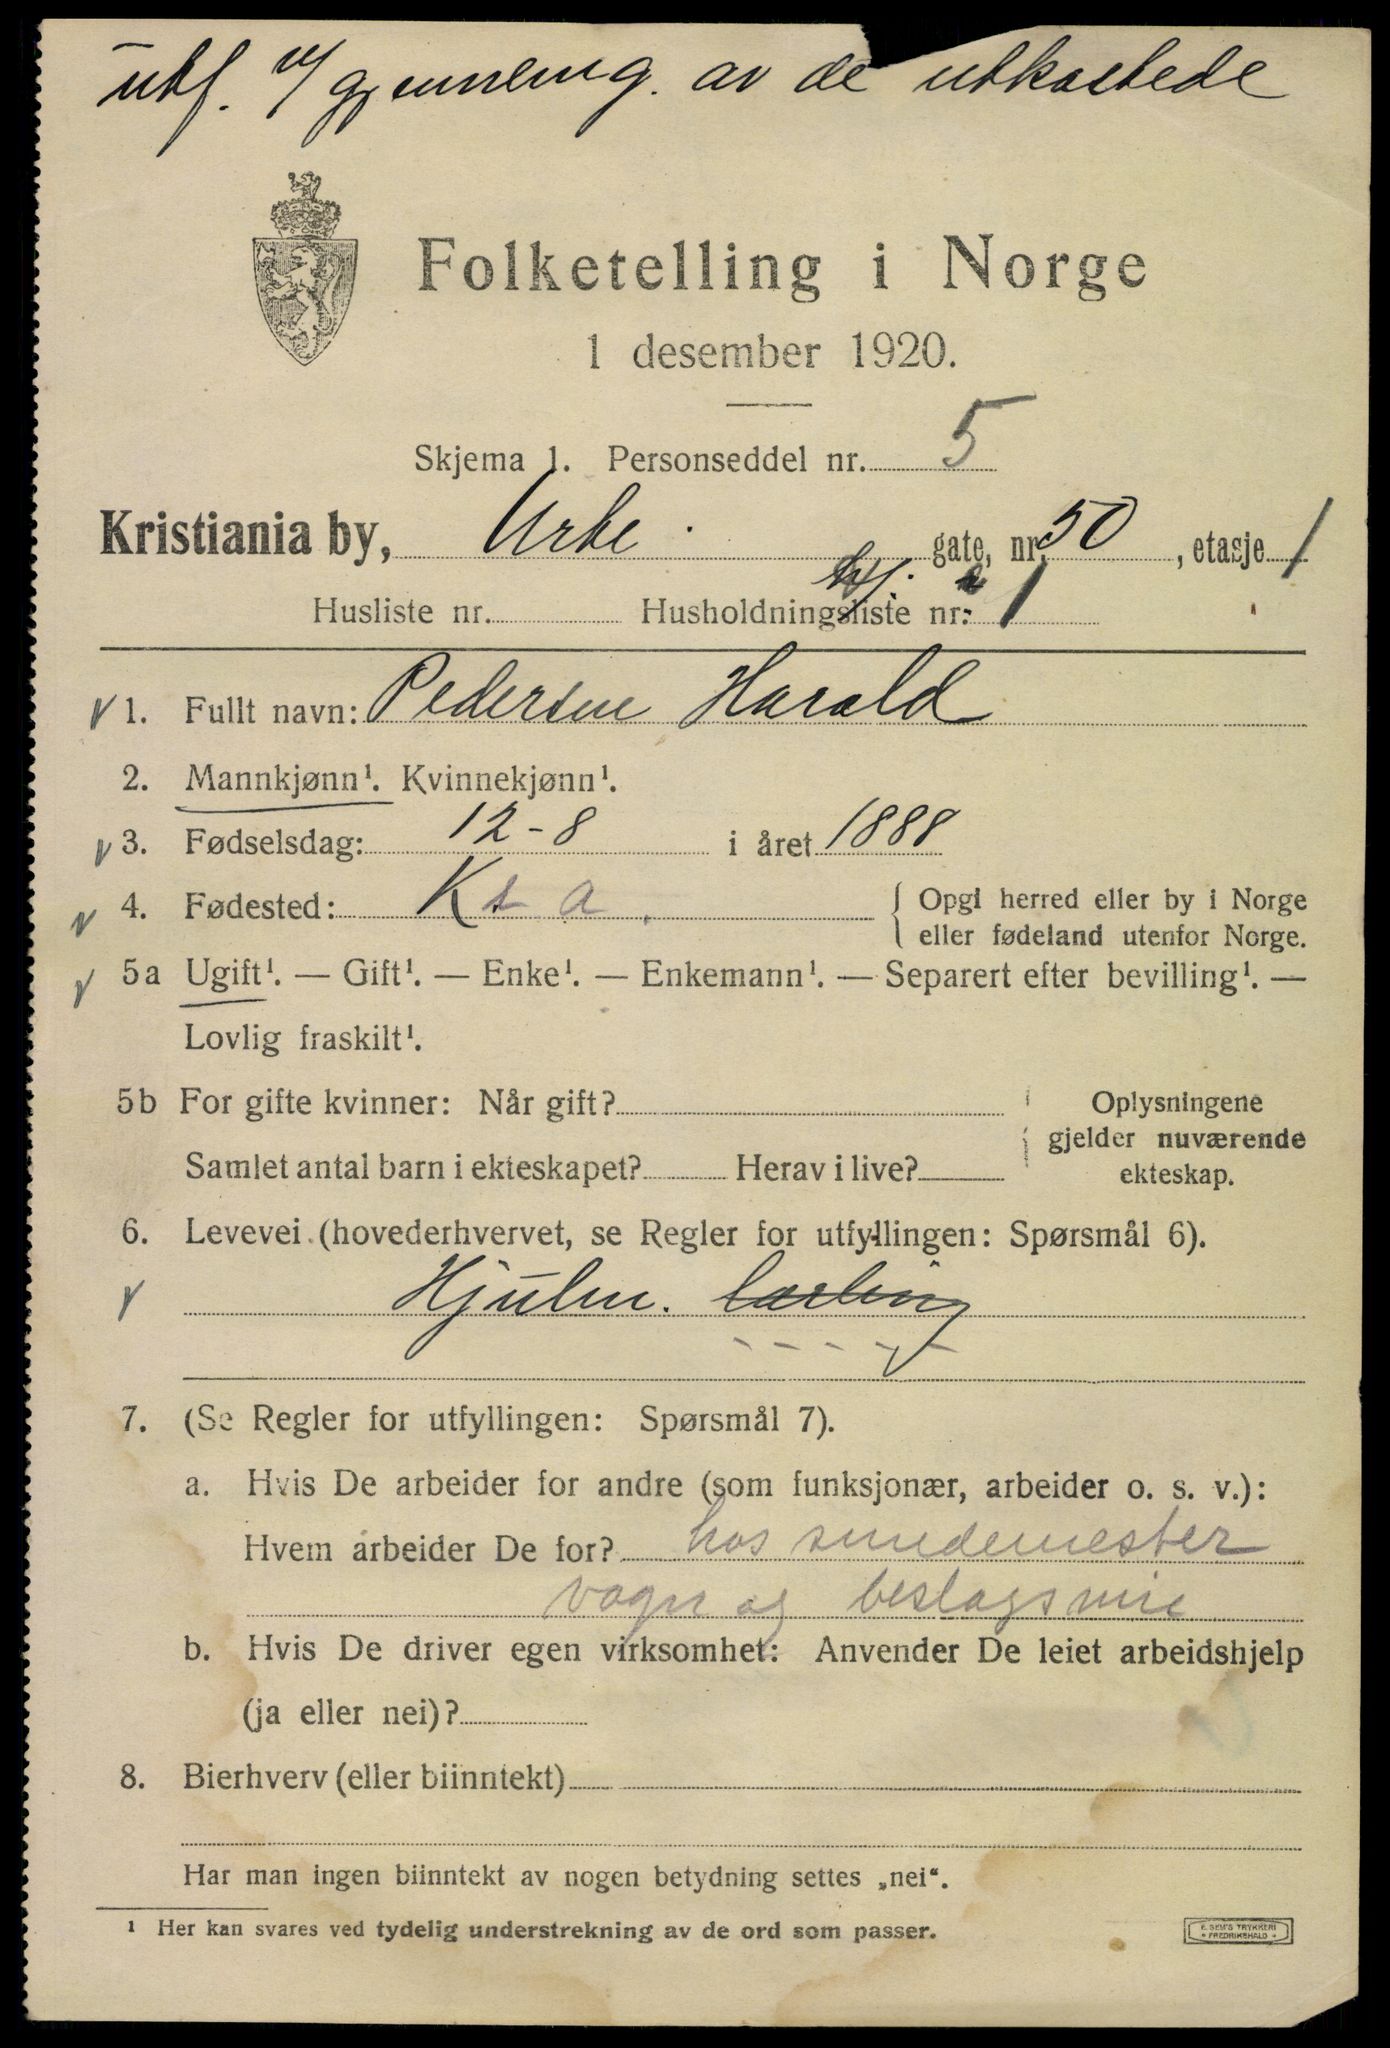 utf. v/ gjennemg. av de utkastede
Folketelling i Norge
1 desember 1920.
Skjema 1. Personseddel nr. 5
Kristiania by, Urte gate, nr. 50, etasje 1
Husliste nr. Husholdningsliste nr. 1
1. Fullt navn: Pedersen Harald
2. Mannkjønn¹. Kvinnekjønn¹.
3. Fødselsdag: 12-8 i året 1888
4. Fødested: Kra. Opgi herred eller by i Norge
eller fødeland utenfor Norge.
5a Ugift¹. — Gift¹. — Enke¹. — Enkemann¹. — Separert efter bevilling¹. —
Lovlig fraskilt¹.
5b For gifte kvinner: Når gift? Oplysningene
gjelder nuværende
Samlet antal barn i ekteskapet? Herav i live? ekteskap.
6. Levevei (hovederhvervet, se Regler for utfyllingen: Spørsmål 6).
Hjulm. lærling
7. (Se Regler for utfyllingen: Spørsmål 7).
a. Hvis De arbeider for andre (som funksjonær, arbeider o. s. v.):
Hvem arbeider De for? hos smedemester
vogn og beslagsmie
b. Hvis De driver egen virksomhet: Anvender De leiet arbeidshjelp
(ja eller nei)?
8. Bierhverv (eller biinntekt)
Har man ingen biinntekt av nogen betydning settes „nei“.
¹ Her kan svares ved tydelig understrekning av de ord som passer.
E. SEM'S TRYKKERI
FREDRIKSHALD